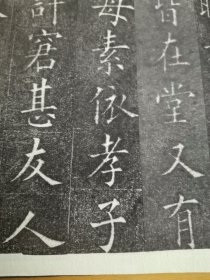 皆在堂又有
母素依孝子
許窘甚友人